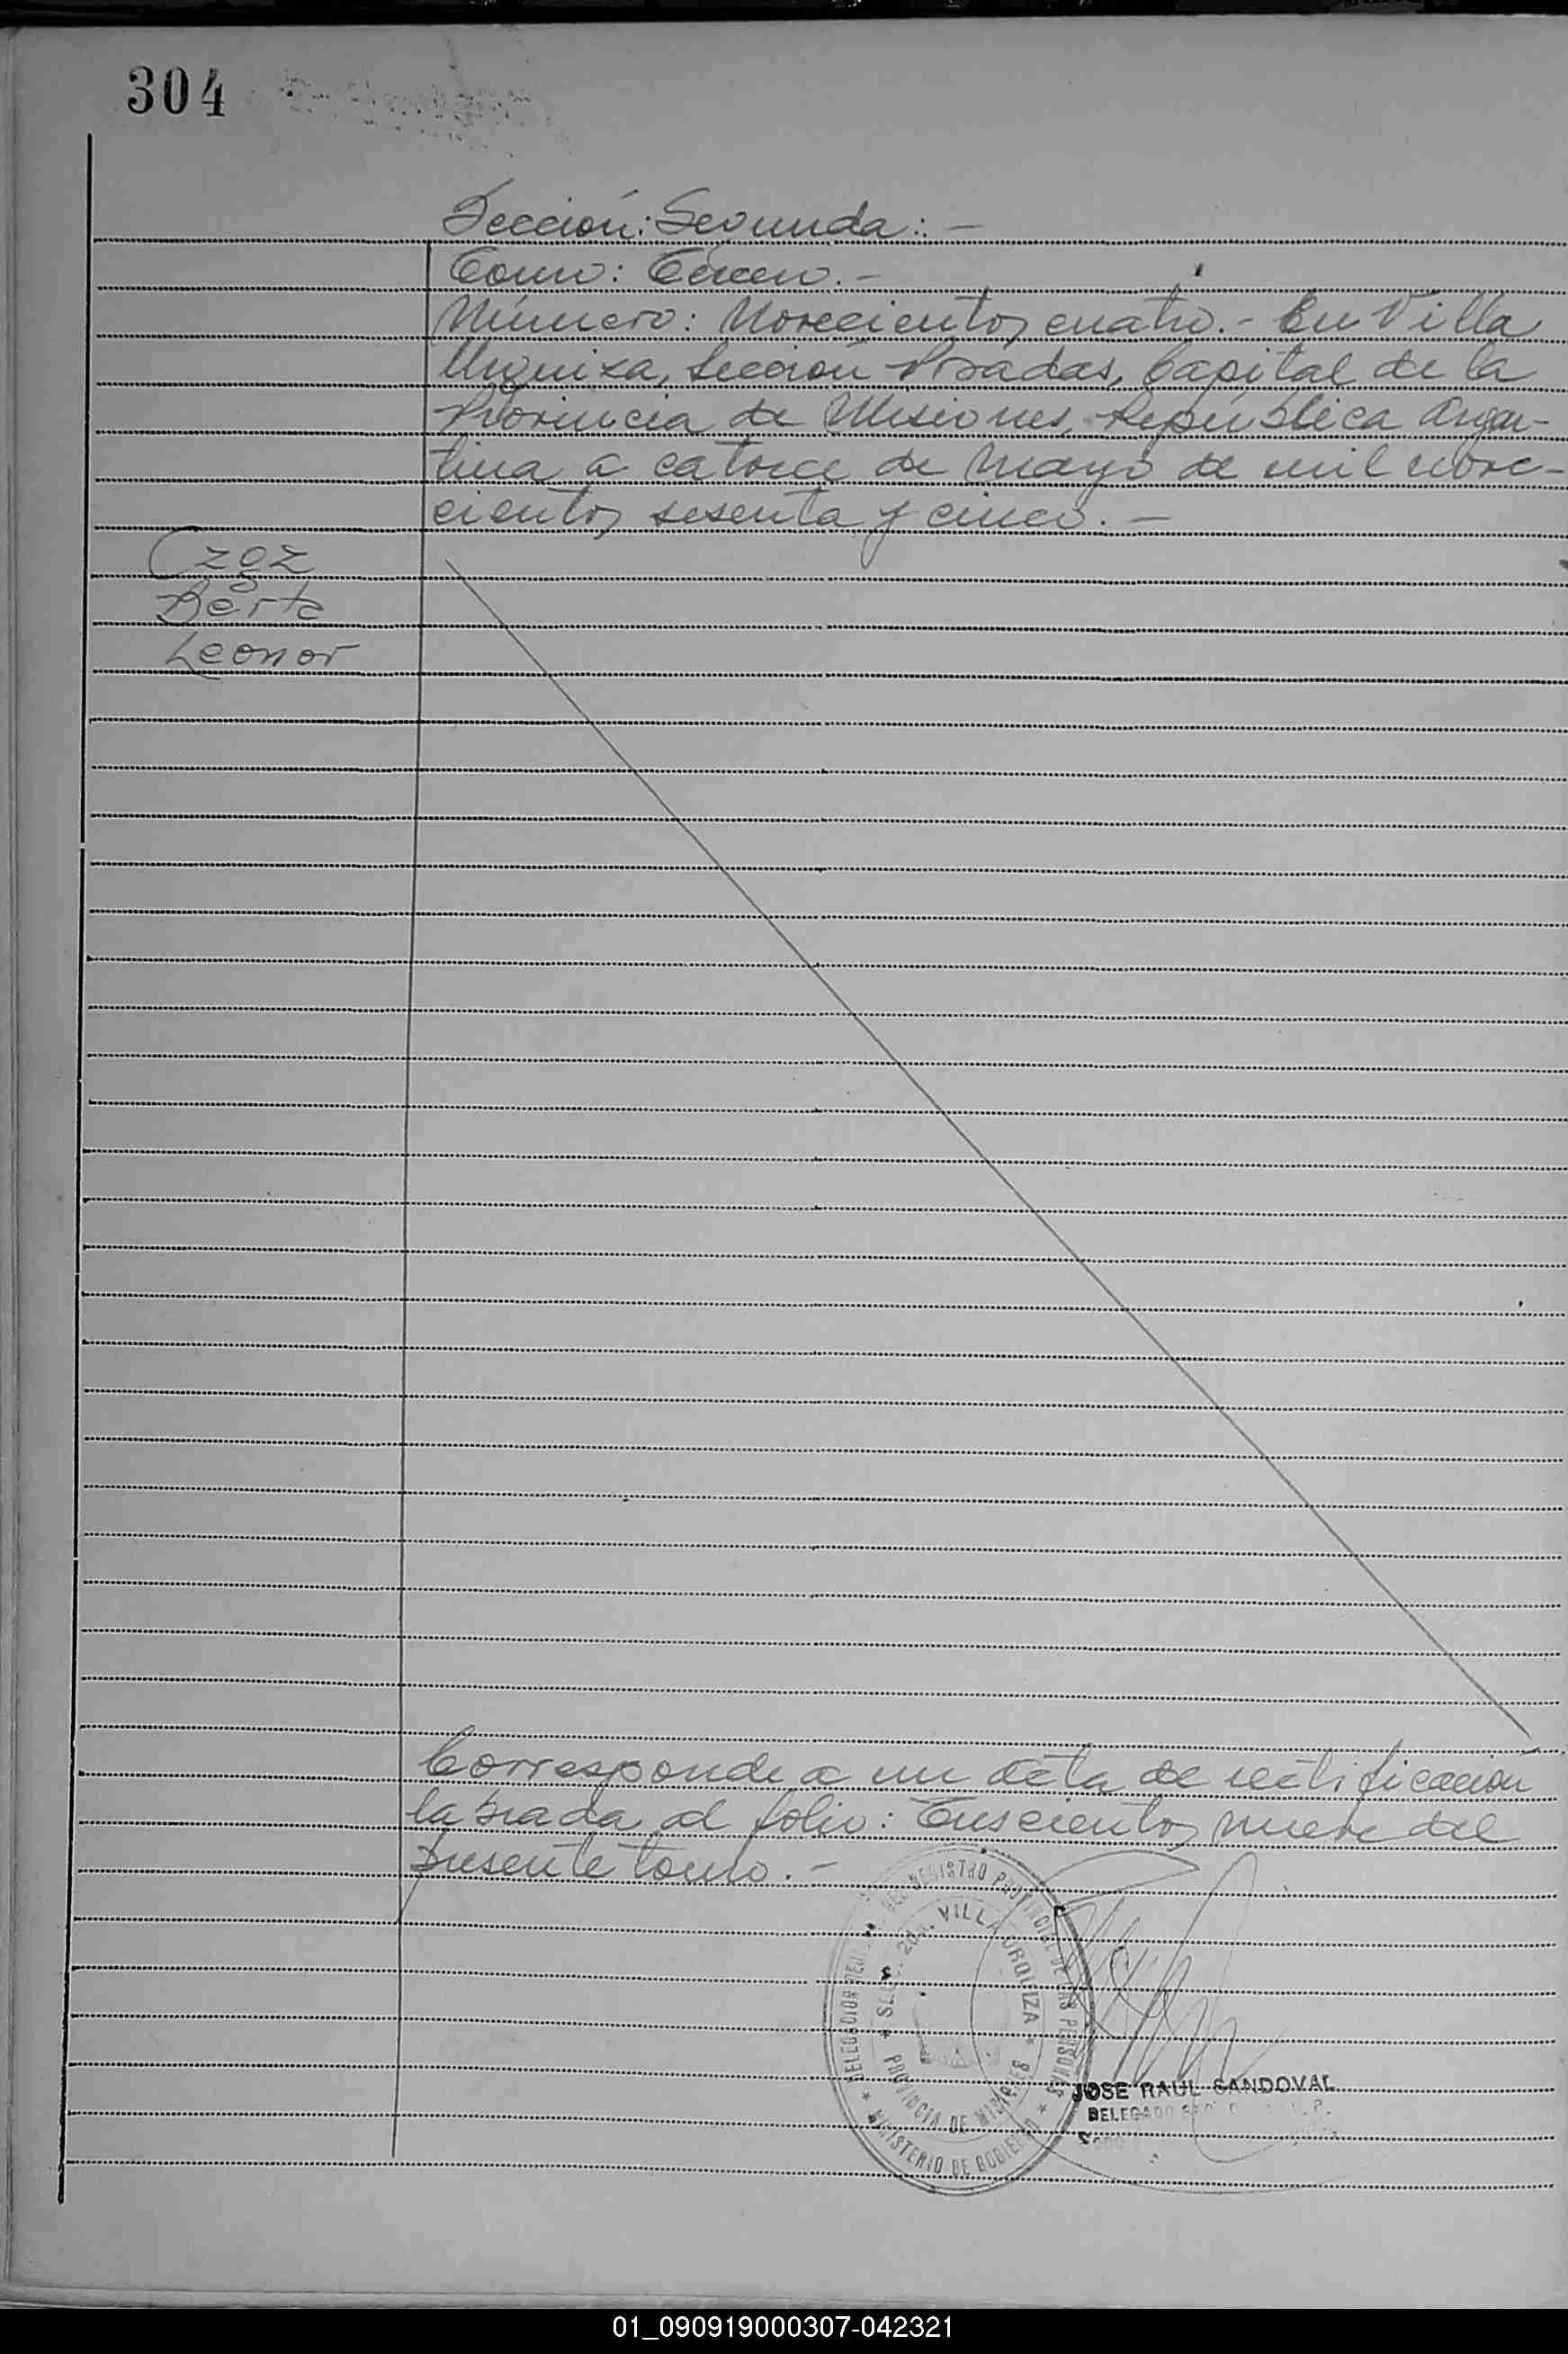 304
Sección: Segunda:. -
Tomo: Tercero. -
Número: Novecientos cuatro. - En Villa
Urquiza, Sección Posadas, Capital de la
Provincia de Misiones, República Argen-
tina a catorce de Mayo de mil nove-
cientos sesenta y cinco. -
Czoz
Berta
Leonor
Corresponde a un acta de rectificación
labrada al folio: Trescientos nueve del
presente tomo. -
REGISTRO PROVINCIAL DE LAS PERSONAS
* SECC. 2da. VILLA URQUIZA *
PROVINCIA DE MISIONES
* MINISTERIO DE GOBIERNO *
JOSE RAUL SANDOVAL
DELEGADO
01_090919000307-042321